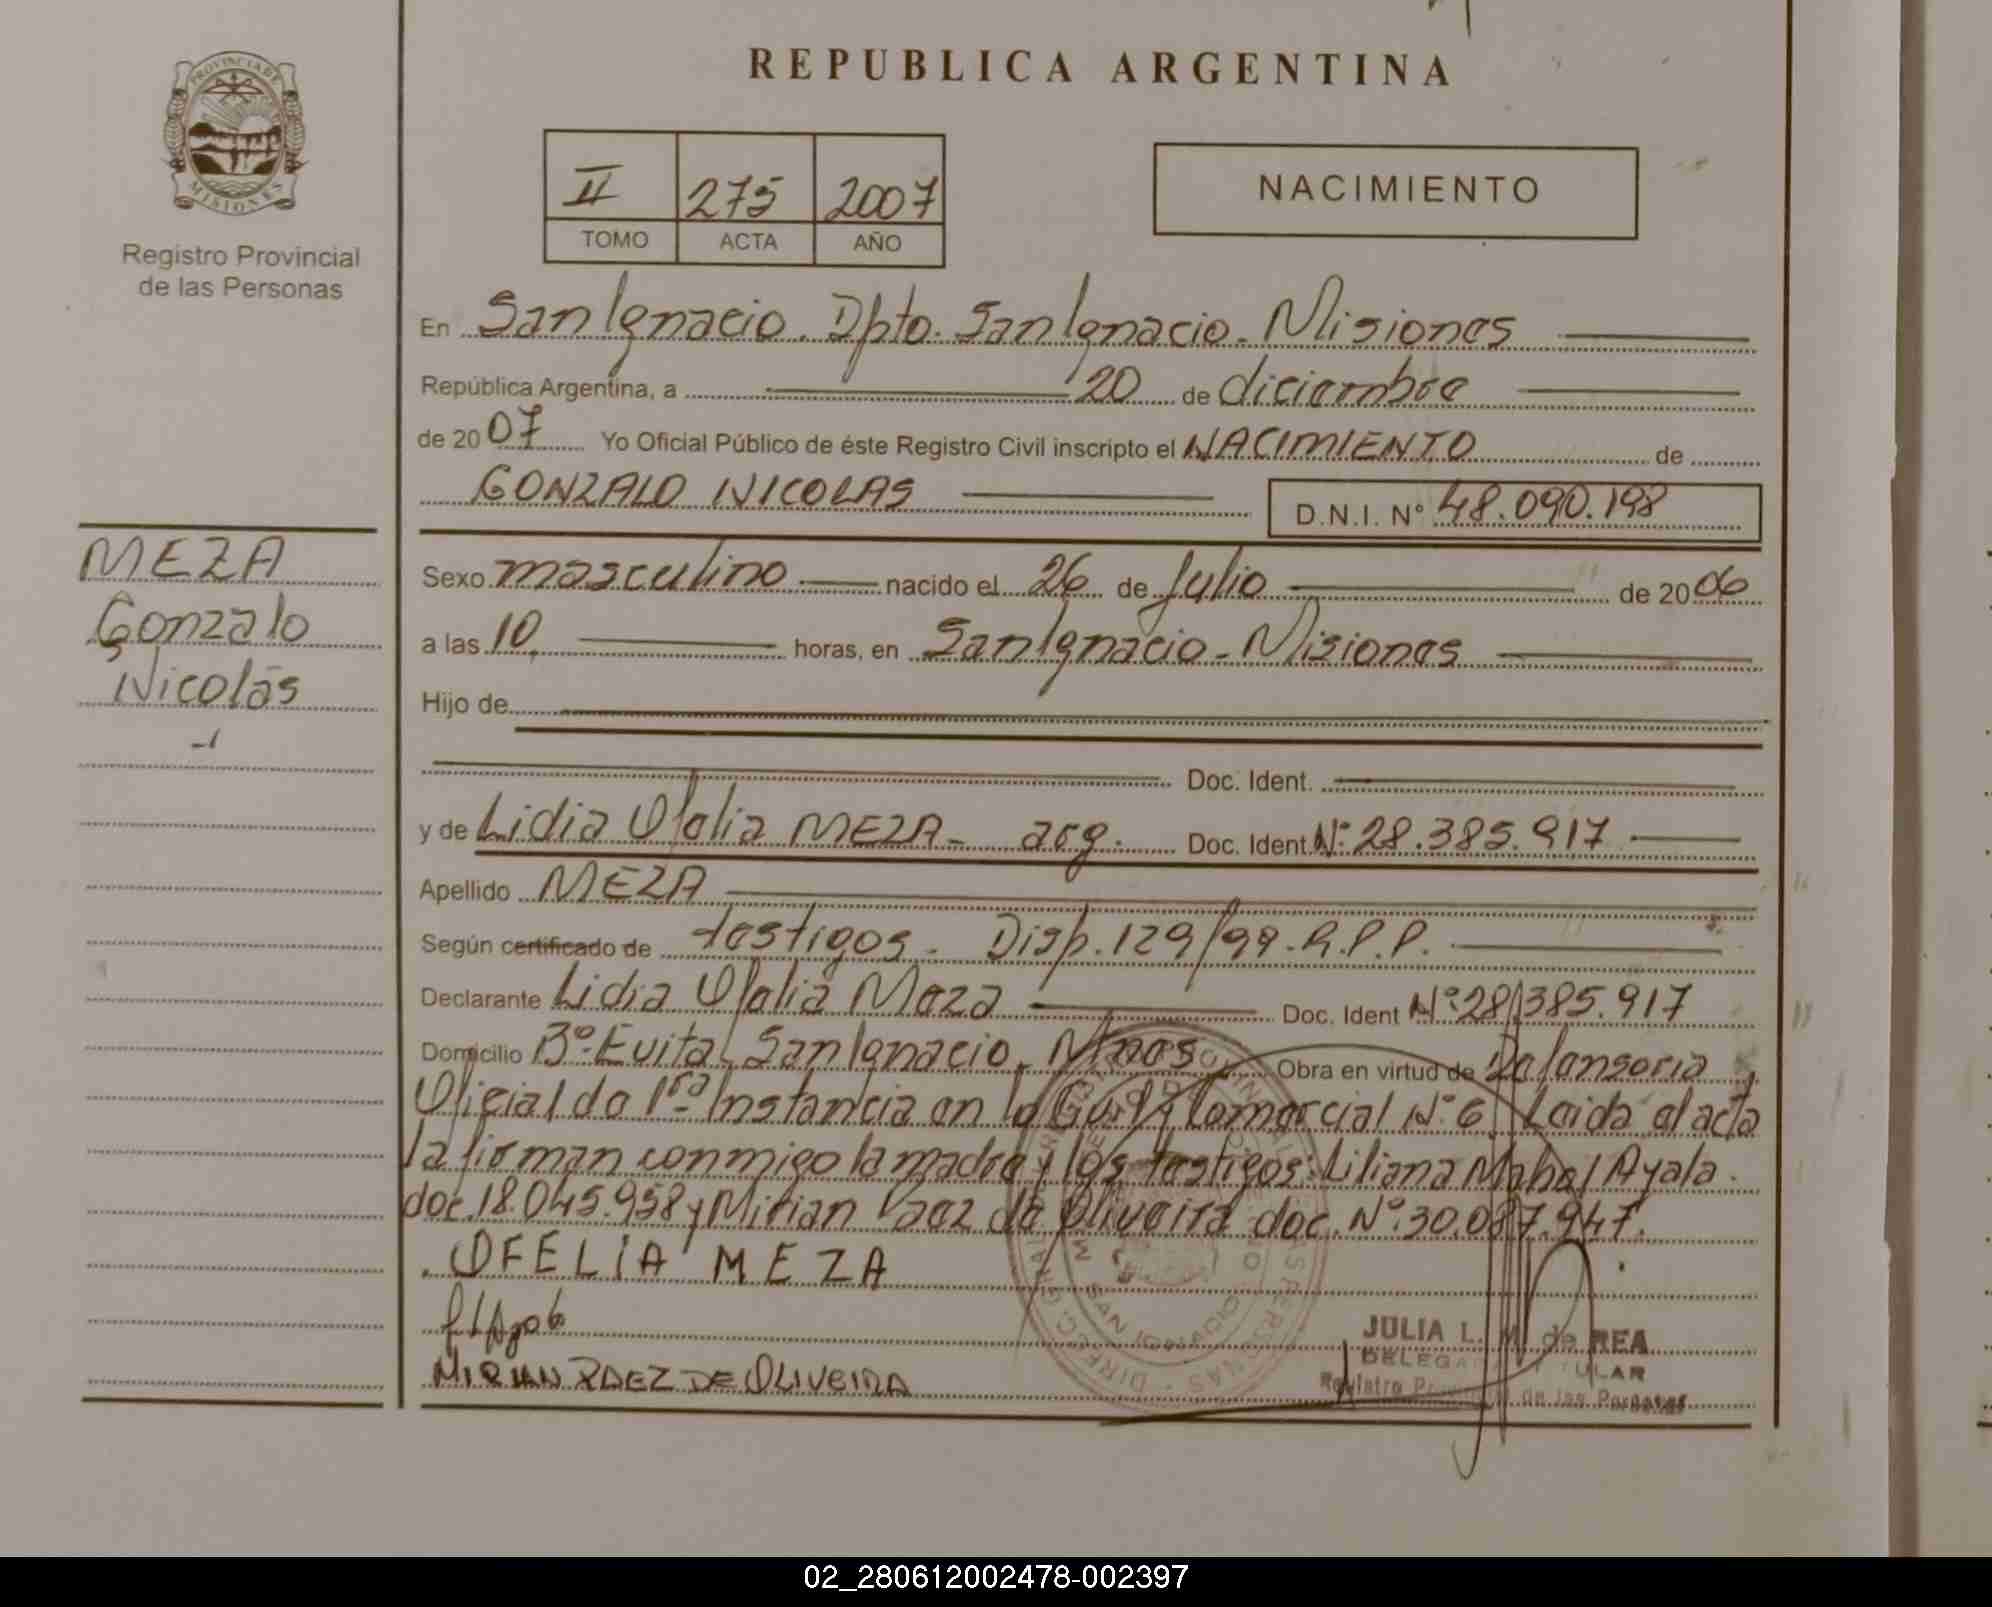 PROVINCIA DE
MISIONES
Registro Provincial
de las Personas
MEZA
Gonzalo
Nicolás
REPUBLICA ARGENTINA
II 275 2007
TOMO ACTA AÑO
NACIMIENTO
En San Ignacio. Dpto. San Ignacio - Misiones
República Argentina, a 20 de diciembre
de 2007 Yo Oficial Público de éste Registro Civil inscripto el NACIMIENTO de
GONZALO NICOLAS D.N.I. Nº 48.090.198
Sexo masculino nacido el 26 de Julio de 2006
a las 10, horas, en San Ignacio - Misiones
Hijo de
Doc. Ident.
y de Lidia Ofelia MEZA - arg. Doc. Ident. Nº 28.385.917
Apellido MEZA
Según certificado de testigos - Disp. 129/99 - R.P.P.
Declarante Lidia Ofelia Meza Doc. Ident Nº 28.385.917
Domicilio Bº Evita, San Ignacio, Mnes Obra en virtud de Defensoria
Oficial de 1ra Instancia en lo Civil y Comercial Nº 6. Leida el acta
la firman conmigo la madre y los testigos: Liliana Mabel Ayala
doc. 18.045.958 y Mirian Paez de Oliveira doc. Nº 30.087.947.
OFELIA MEZA
MIRIAN PAEZ DE OLIVEIRA
JULIA L. M. de REA
DELEGADA TITULAR
Registro Provincial de las Personas
SAN IGNACIO
02_280612002478-002397